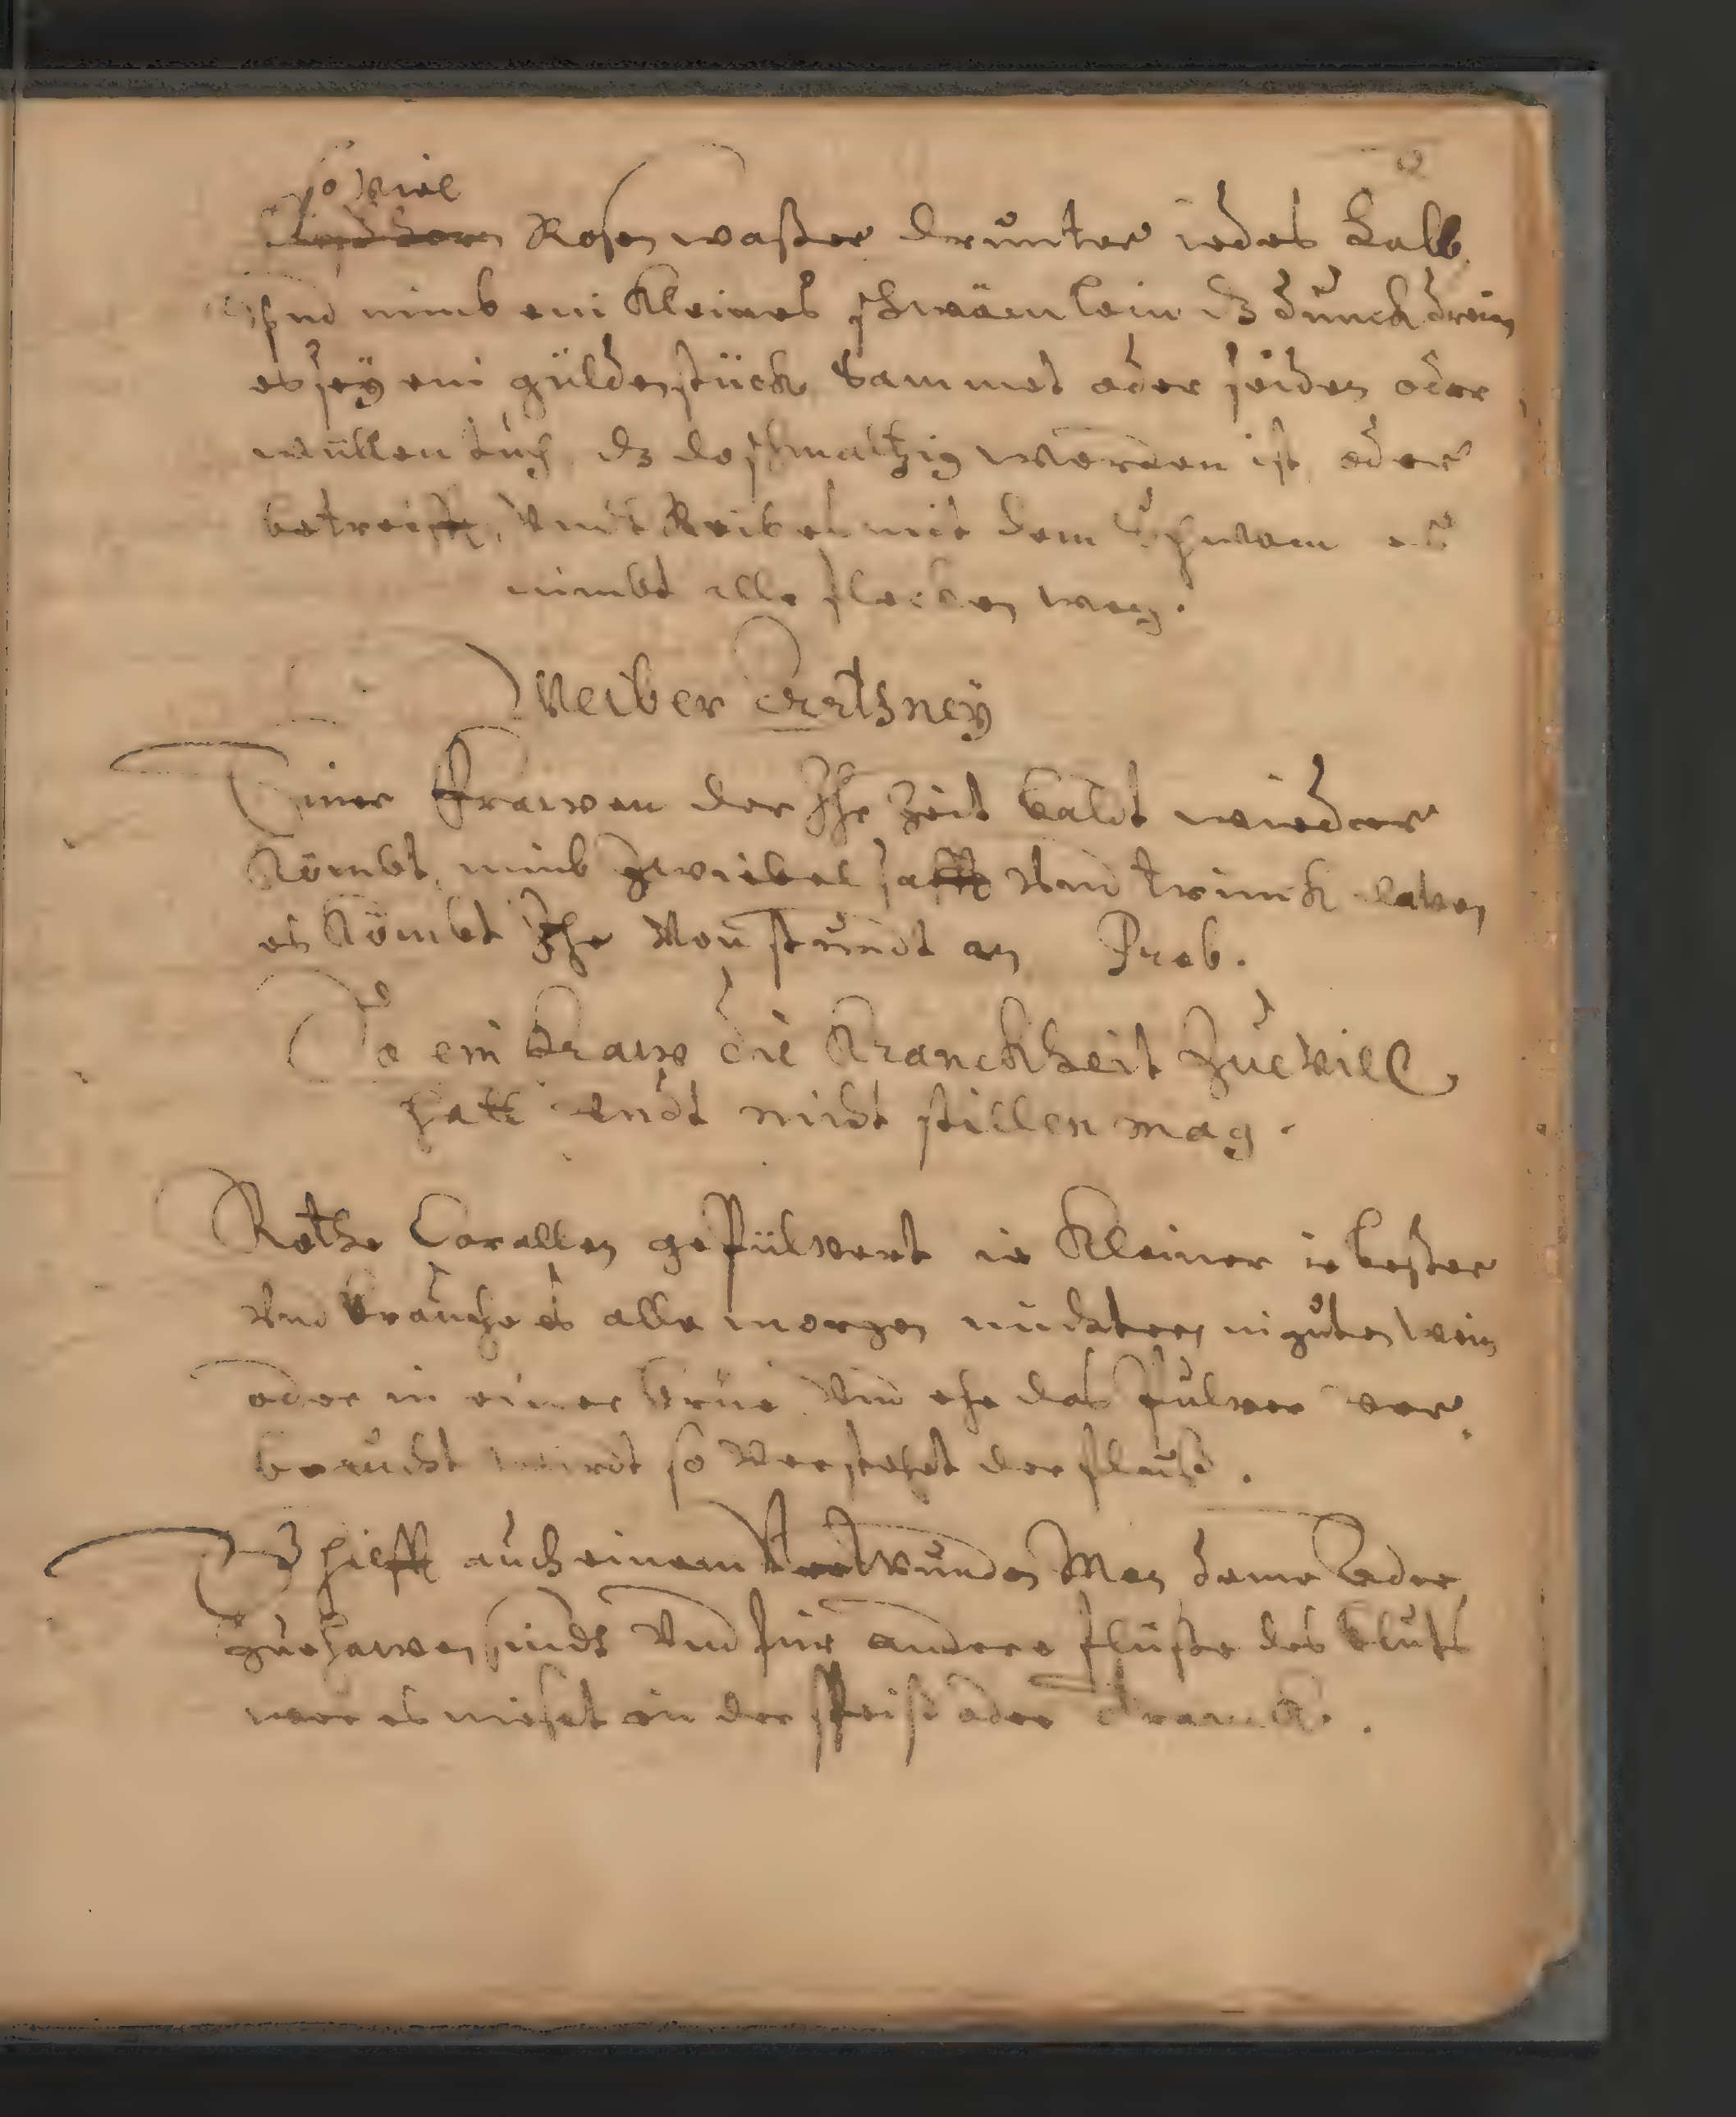 so viel
Rosen waßer drunter iedes halb
Vnd nimb ein Kleines schwämlein dz dunck drein
es seÿ ein güldenstück Sammet oder seiden oder
wüllen tuch dz do schmaltzig worden ist oder
betreifft, Vndt Reib es mit dem Schwam es
nimbt alle flecken weg.
Weiber Ertzneÿ
Einer Frawen der Ihr Zeit baldt wieder
Kömbt, nimb zwiebel safft Vnd trinck dauon
es Kömbt Ihr Von stundt an Prob.
So ein Fraw die Kranckheit Zue viell
hatt vndt nicht stillen mag.
Rothe Corallen gepülvert ie Kleiner ie beßer
Vnd brauche es alle morgen nüchtern in guten wein
oder in einer brüe Vnd ehe das pulver ver
braucht wirdt so Verstehet der fluß.
Es hilfft auch einem Verwunden Man deme Ader
zuehawen sindt Vnd für andere flüße des bluts
wer es nieset in der speiß oder Tranck.